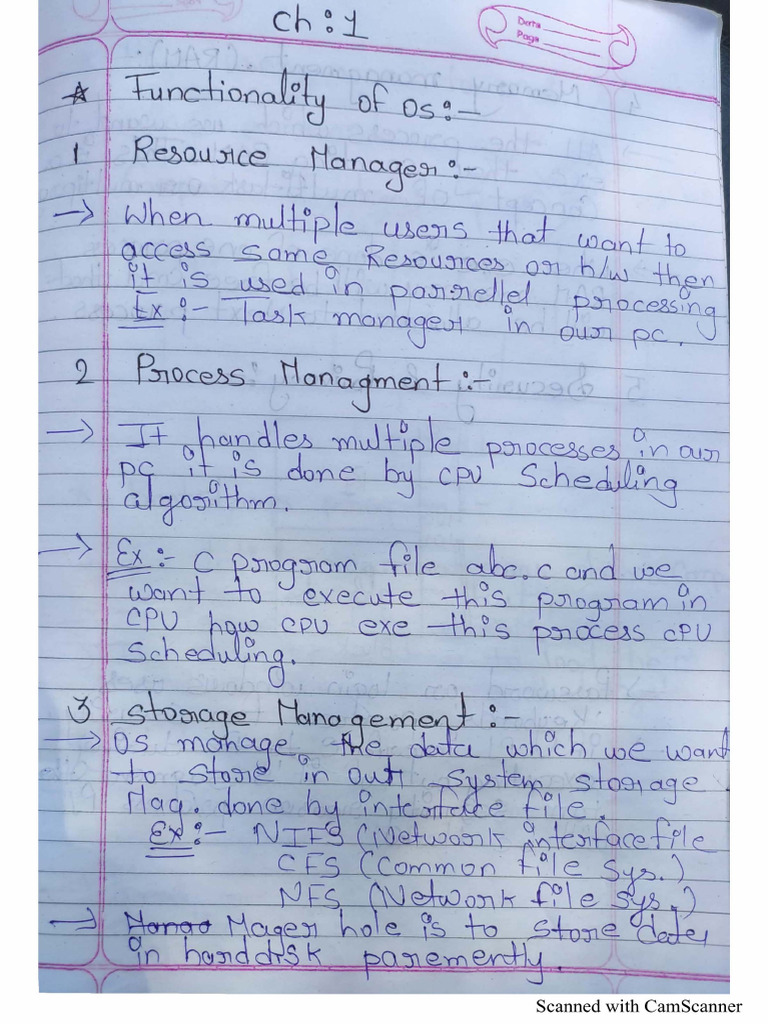 Ch:1
Date
Page
☆ Functionality of os:-
1 Resource Manager:-
→ When multiple users that want to
access some Resources or h/w then
it is used in parrellel processing
Ex:- Task manager in our pc.
2 Process Managment:-
→ It handles multiple processes in our
pc it is done by CPU Scheduling
algorithm.
→ Ex:- C program file abc.c and we
want to execute this program in
CPU how CPU exe this process CPU
Scheduling.
3 Storage Management:-
→ OS manage the data which we want
to store in our system storage
Mag. done by interface file.
Ex:- NIFS (Network interface file
CFS (Common file sys.)
NFS (Network file sys.)
→ Mager hole is to store data
in harddisk paremently.
Scanned with CamScanner